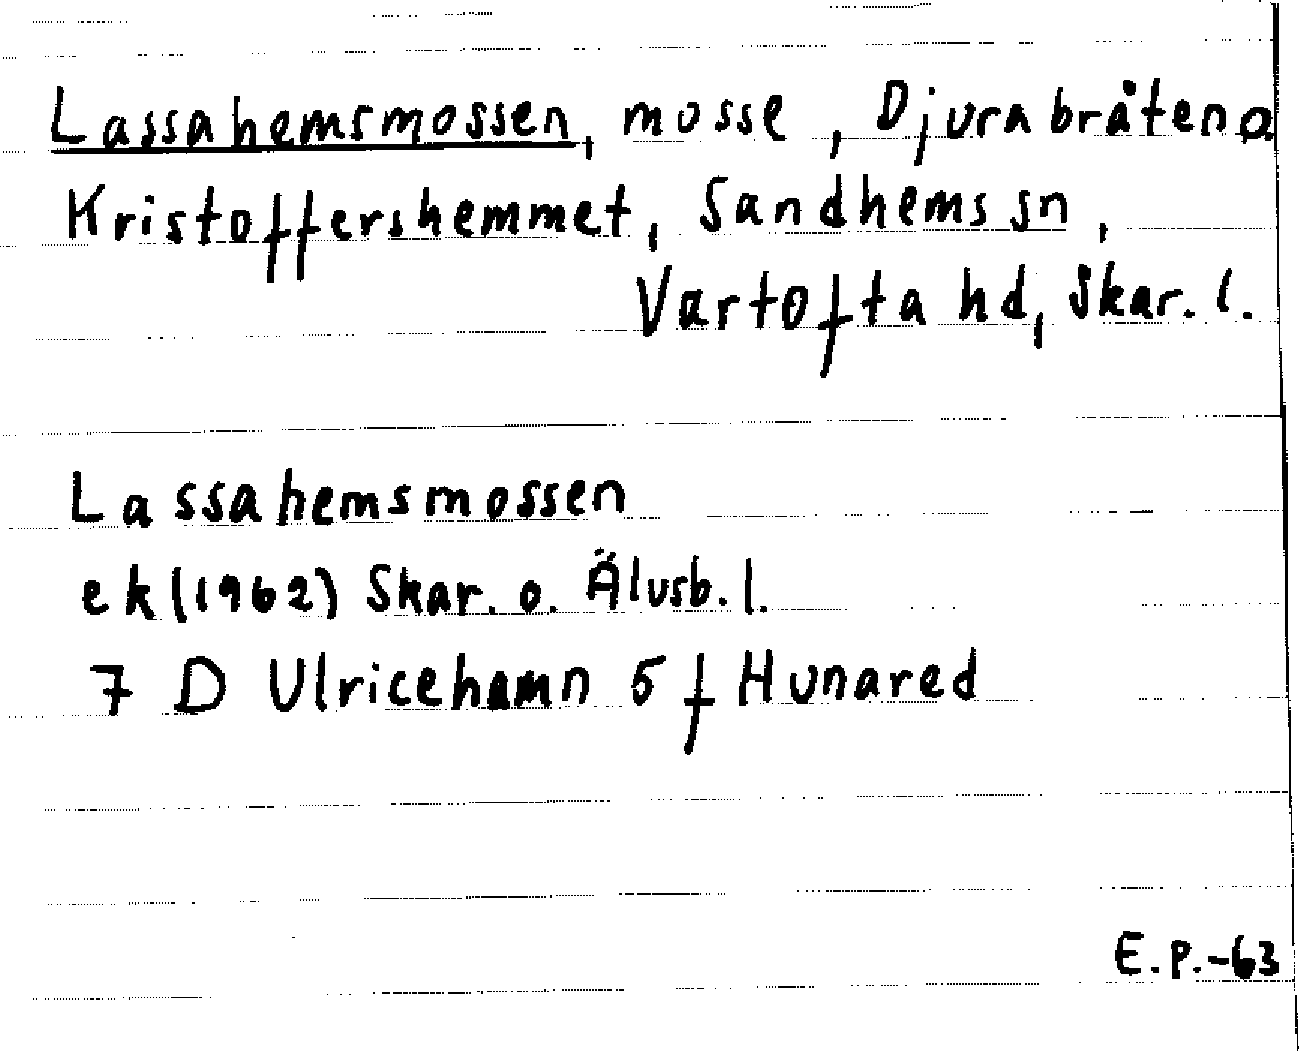 Lassahemsmossen, mosse, Djurabråten o.
Kristoffershemmet, Sandhems sn,
Vartofta hd, Skar. l.
Lassahemsmossen
ek (1962) Skar. o. Älvsb. l.
7 D Ulricehamn 5 f Hunared
E.P.-63